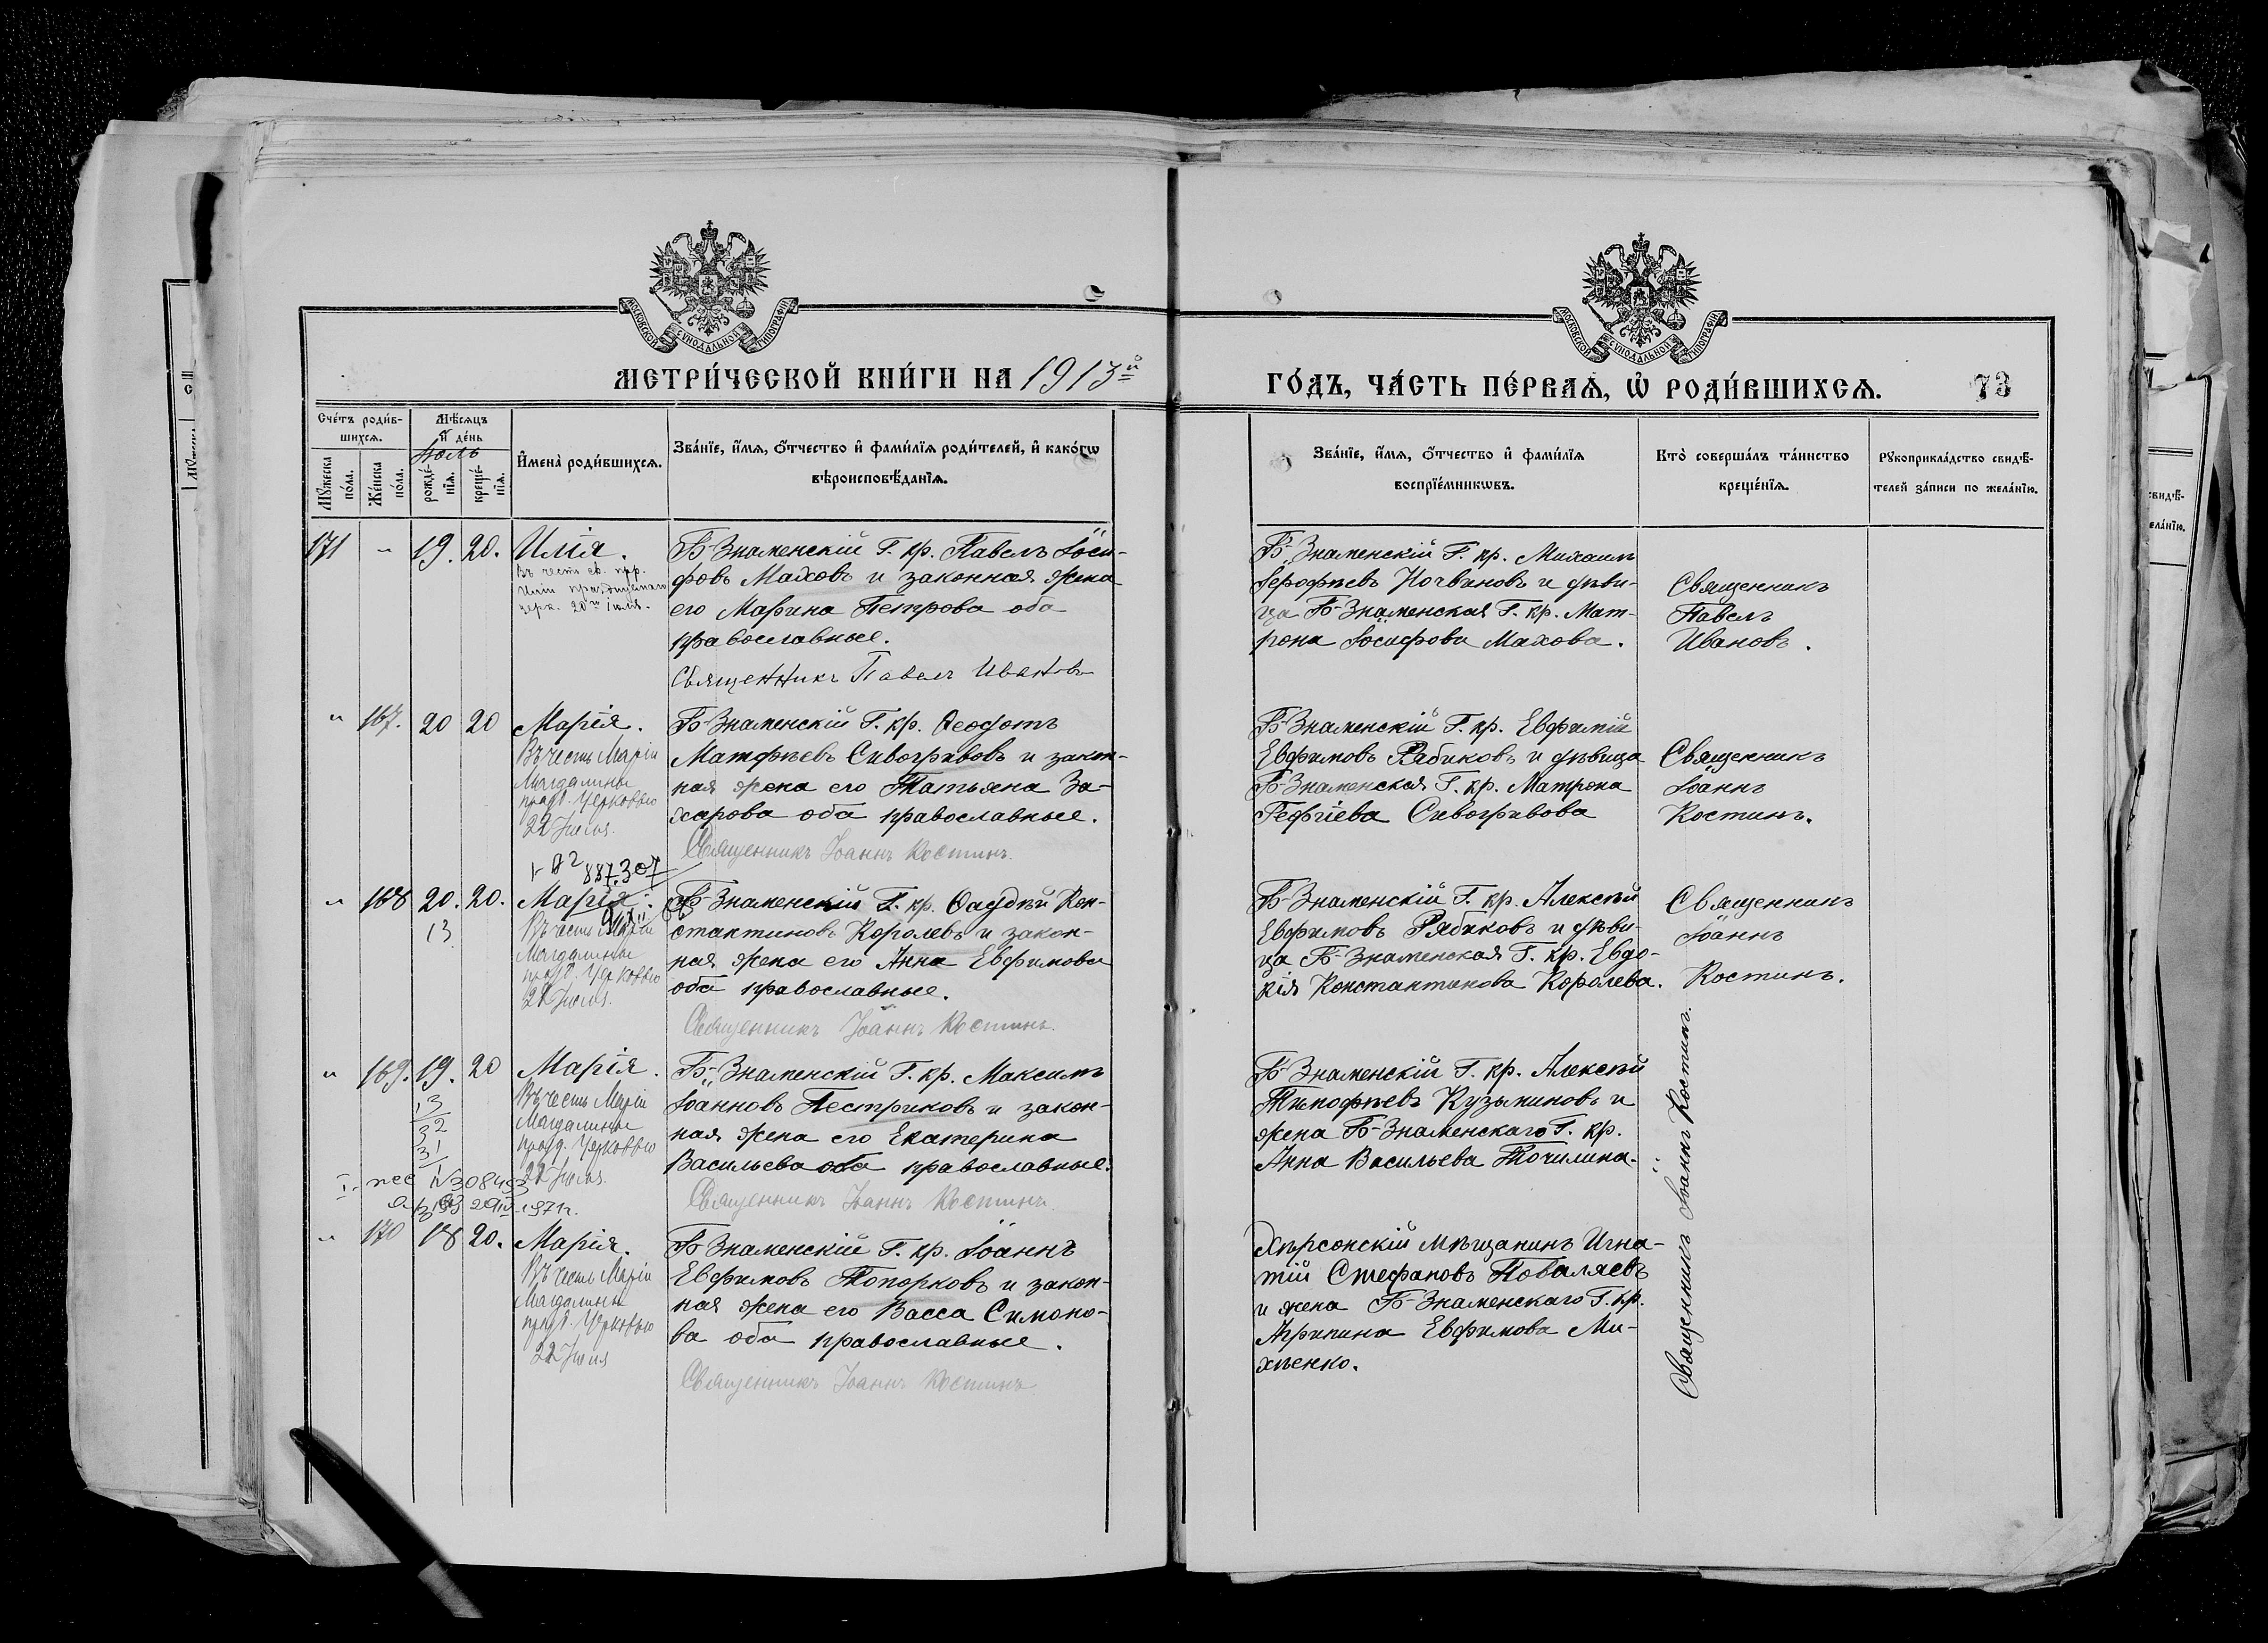 МОСКОВСКОЙ СУНОДАЛЬНОЙ ТИПОГРАФІИ
МОСКОВСКОЙ СУНОДАЛЬНОЙ ТИПОГРАФІИ
МЕТРИ́ЧЕСКОЙ КНИ́ГИ НА 1913й
ГО́ДЪ, ЧА́СТЬ ПЕ́РВАѦ, Ѡ҆ РОДИ́ВШИХСѦ.
73
Сче́тъ роди́в-
шихсѧ.
Мѣ́сѧцъ
и҆ де́нь
Іюль
Мꙋ́жеска
по́ла.
Же́нска
по́ла.
рожде́-
нїѧ.
креще́-
нїѧ.
И҆мена̀ роди́вшихсѧ.
Зва́нїе, и҆́мѧ, ѻ҆́тчество и҆ фами́лїѧ роди́телей, и҆ како́гѡ
вѣроисповѣ́данїѧ.
Зва́нїе, и҆́мѧ, ѻ҆́тчество и҆ фами́лїѧ
воспрїе́мникѡвъ.
Кто̀ соверша́лъ та́инство
креще́нїѧ.
Рꙋкоприкла́дство свидѣ́-
телей за́писи по жела́нїю.
171 " 19. 20. Илія.
Въ честь св. прр.
Иліи
церк. 20го Іюля.
Б-Знаменскій Г. кр. Павелъ Іоси-
фовъ Маховъ и законная жена
его Марина Петрова оба
православные.
Священникъ Павелъ Ивановъ
Б-Знаменскій Г. кр. Михаилъ
Іерофѣевъ Кочвановъ и дѣви-
ца Б-Знаменская Г. кр. Мат-
рона Іосифова Махова.
Священникъ
Павелъ
Ивановъ.
" 167. 20 20 Марія.
Въ честь Маріи
Магдалины
празд. Церковью
22 Іюля.
Б-Знаменскій Г. кр. Ѳеодотъ
Матфѣевъ Сивогривовъ и закон-
ная жена его Татьяна За-
харова оба православные.
Священникъ Іоаннъ Костинъ.
Б-Знаменскій Г. кр. Евфимій
Евфимовъ Рябиковъ и дѣвица
Б-Знаменская Г. кр. Матрона
Сивогривова
Священникъ
Іоаннъ
Костинъ.
887307
" 168 20. 20. Марія.
13
Въ честь Маріи
Магдалины
празд. Церковью
22 Іюля.
Б-Знаменскій Г. кр. Ѳаддѣй Кон-
стантиновъ Королевъ и закон-
ная жена его Анна Евфимова
оба православные.
Священникъ Іоаннъ Костинъ.
Б-Знаменскій Г. кр. Алексѣй
Евфимовъ Рябиковъ и дѣви-
ца Б-Знаменская Г. кр. Евдо-
кія Константинова Королева.
Священникъ
Іоаннъ
Костинъ.
" 169. 19. 20 Марія.
13
32
31
Въ честь Маріи
Магдалины
празд. Церковью
22 Іюля.
1971г.
Б-Знаменскій Г. кр. Максимъ
Іоанновъ Пестриковъ и закон-
ная жена его Екатерина
Васильева оба православные.
Священникъ Іоаннъ Костинъ.
Б-Знаменскій Г. кр. Алексѣй
Тимофѣевъ Кузьминовъ и
жена Б-Знаменскаго Г. кр.
Анна Васильева Точилина.
" 170 18 20. Марія.
Въ честь Маріи
Магдалины
празд. Церковью
22 Іюля
Б-Знаменскій Г. кр. Іоаннъ
Евфимовъ Топорковъ и закон-
ная жена его Васса Симоно-
ва оба православные.
Священникъ Іоаннъ Костинъ.
Херсонскій мѣщанинъ Игна-
тій Стефановъ Поваляевъ
и жена Б-Знаменскаго Г. кр.
Агрипина Евфимова Ми-
хѣенко.
Священникъ Іоаннъ Костинъ.